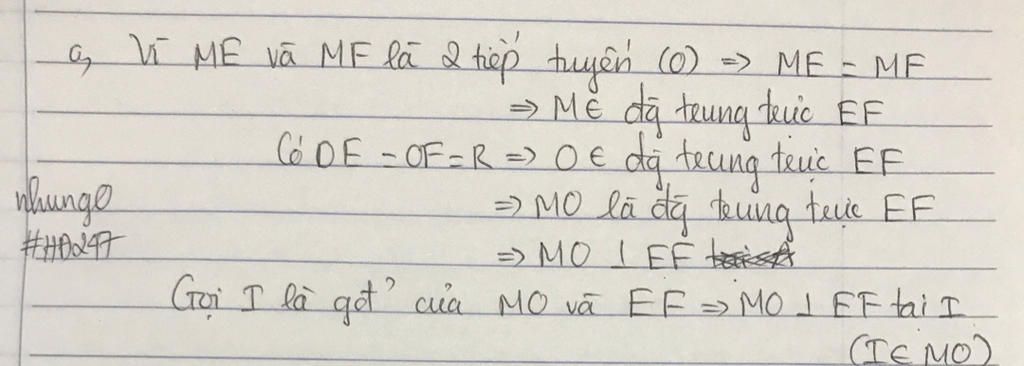 a, Vì ME và MF là 2 tiếp tuyến (O) => ME = MF
=> M ∈ đg trung trực EF
Có OE = OF = R => O ∈ đg trung trực EF
nhung0 => MO là đg trung trực EF
#HĐ247 => MO ⊥ EF
Gọi I là gđ² của MO và EF => MO ⊥ EF tại I
(I ∈ MO)